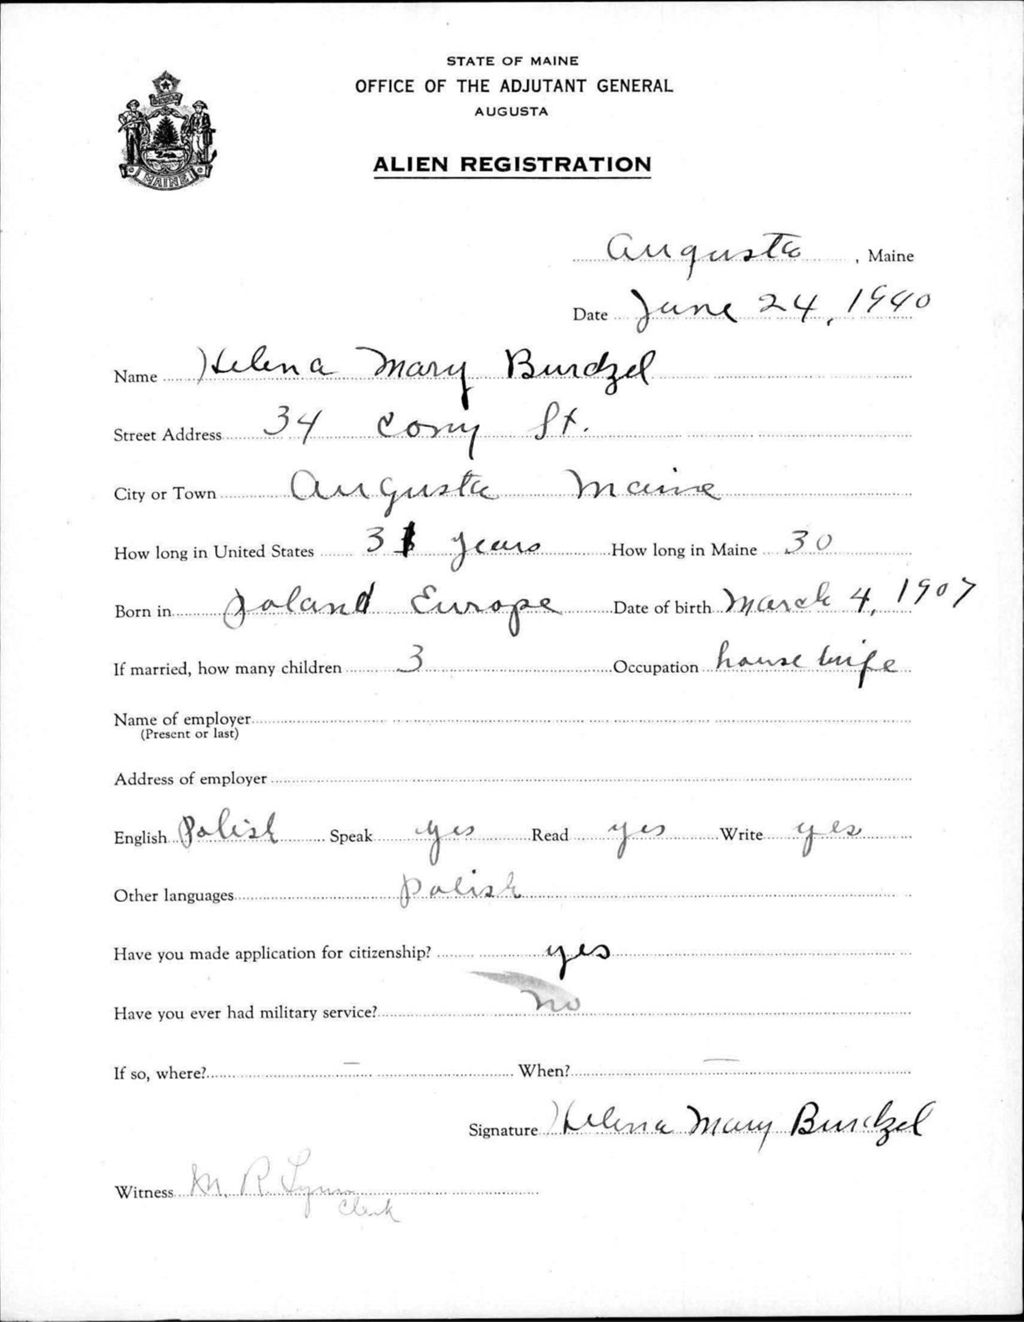 STATE OF MAINE
OFFICE OF THE ADJUTANT GENERAL
AUGUSTA
ALIEN REGISTRATION
MAINE
Augusta, Maine
Date June 24, 1940
Name Helena Mary Burdzel
Street Address 34 Cony St.
City or Town Augusta Maine
How long in United States 31 years How long in Maine 30
Born in Poland Europe Date of birth March 4, 1907
If married, how many children 3 Occupation house wife
Name of employer
(Present or last)
Address of employer
English Polish Speak yes Read yes Write yes
Other languages Polish
Have you made application for citizenship? yes
Have you ever had military service? no
If so, where? — When? —
Signature Helena Mary Burdzel
Witness M. R. Lynn
Clerk